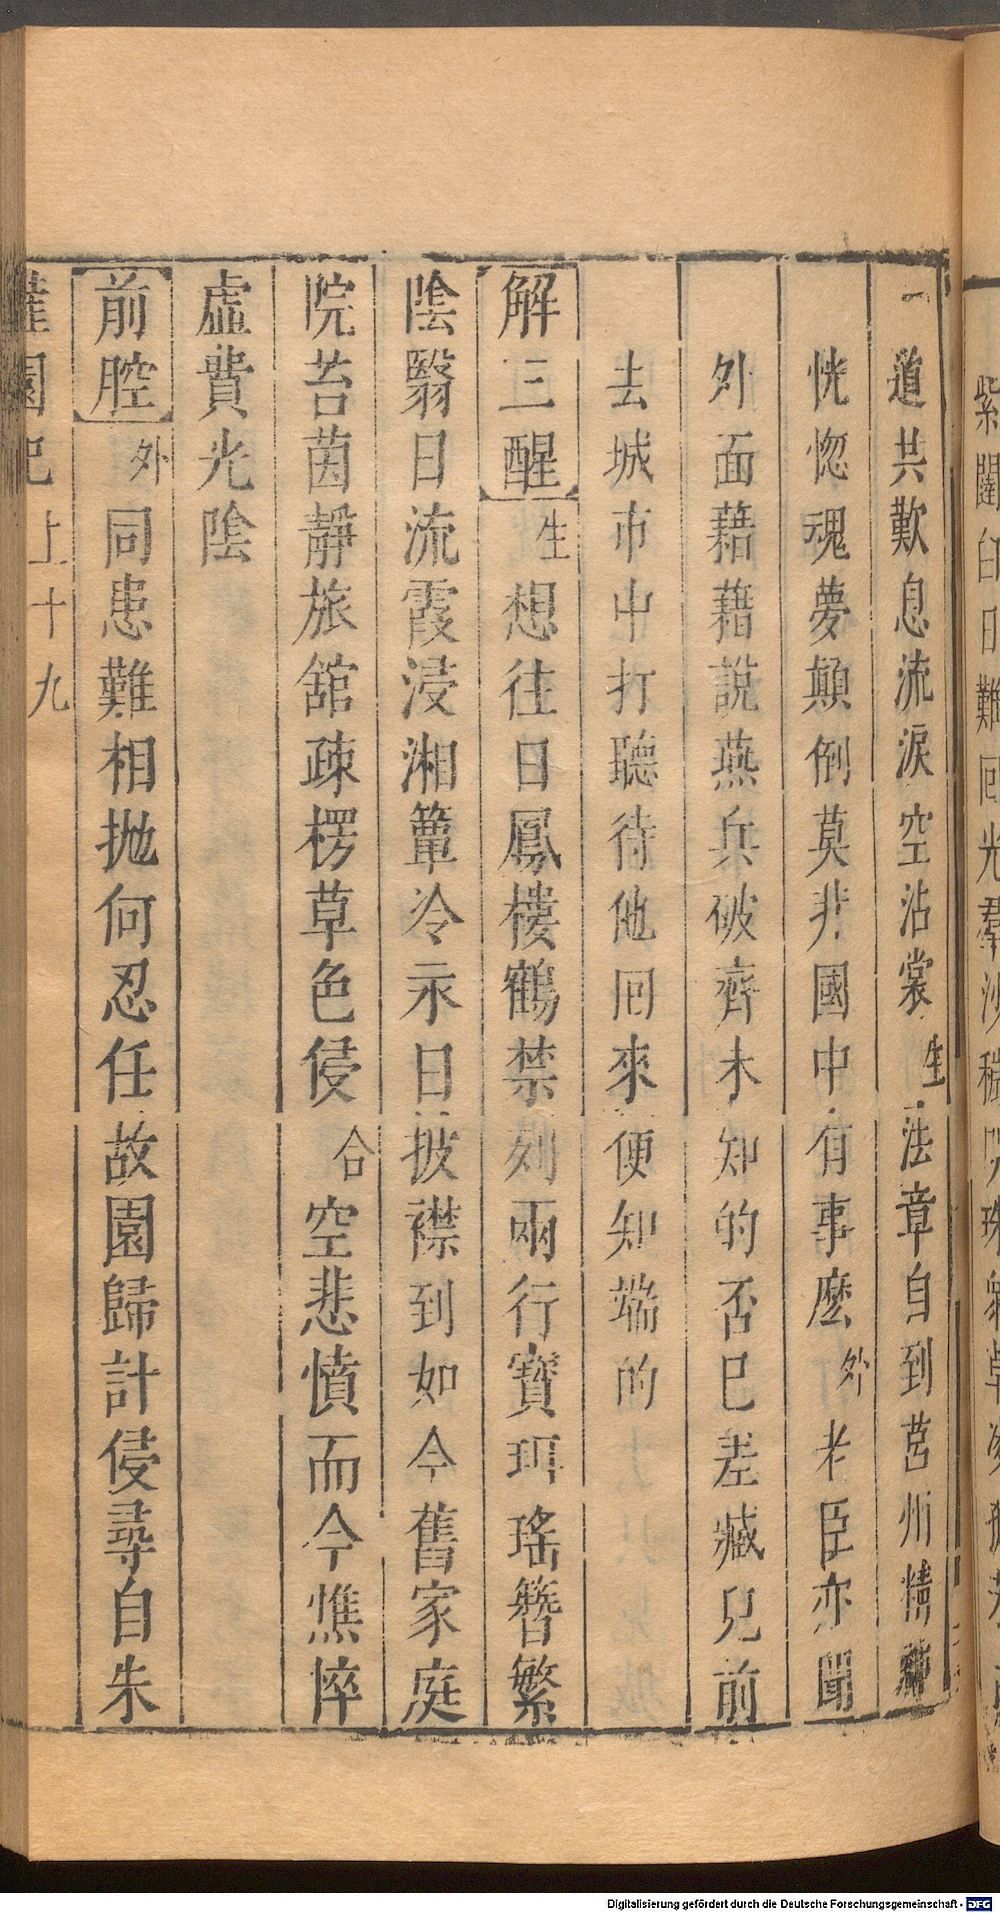 道共歎息流淚空沾裳生法章自到莒州精神
恍惚魂夢顛倒莫非國中有事麽外老臣亦聞
外面藉藉說燕兵破齊未知的否已差臧兒前
去城市中打聽待他回來便知端的
解三酲生想往日鳳樓鶴禁列兩行寶珥瑤簪繁
陰翳日流霞浸湘簟冷永日披襟到如今舊家庭
院苔茵靜旅舘疎楞草色侵合空悲憤而今憔悴
虛費光陰
前腔外同患難相拋何忍任故園歸計侵尋自朱
灌園記 上十九
Digitalisierung gefördert durch die Deutsche Forschungsgemeinschaft - DFG